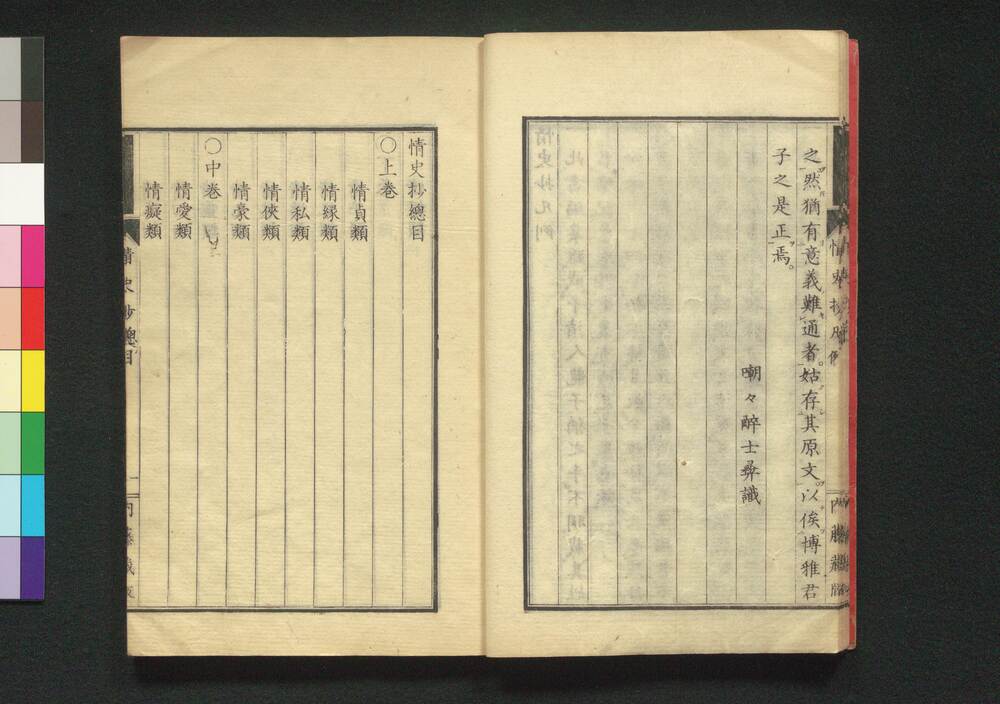 之然猶有意義難通者姑存其原文以俟博雅君
子之是正焉。
嘲々醉士彝識
情史抄凡例
內藤藏版
情史抄總目
〇上卷
情貞類
情緣類
情私類
情俠類
情豪類
〇中卷
情愛類
情癡類
情史抄總目
一
內藤藏版